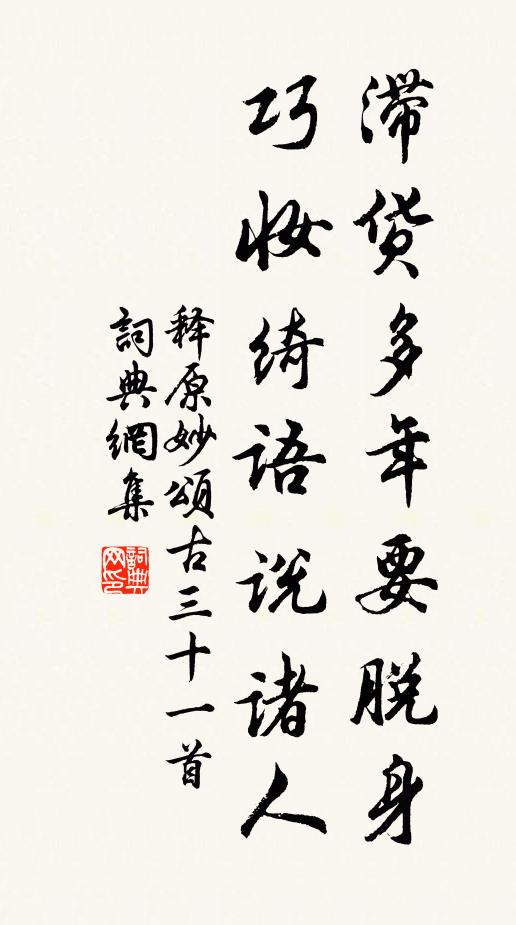 滞货多年要脱身
巧妆绮语说诸人
释原妙颂古三十一首
詞典網集
詞典
网印